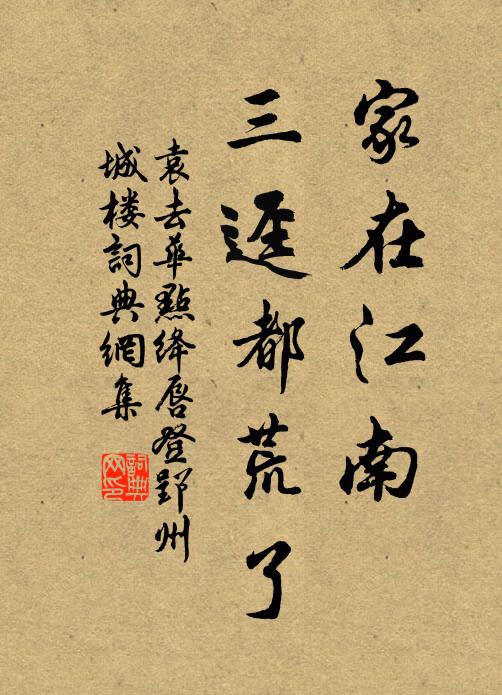 家在江南
三逕都荒了
袁去華點絳唇登郢州
城楼詞典網集
詞典
网印